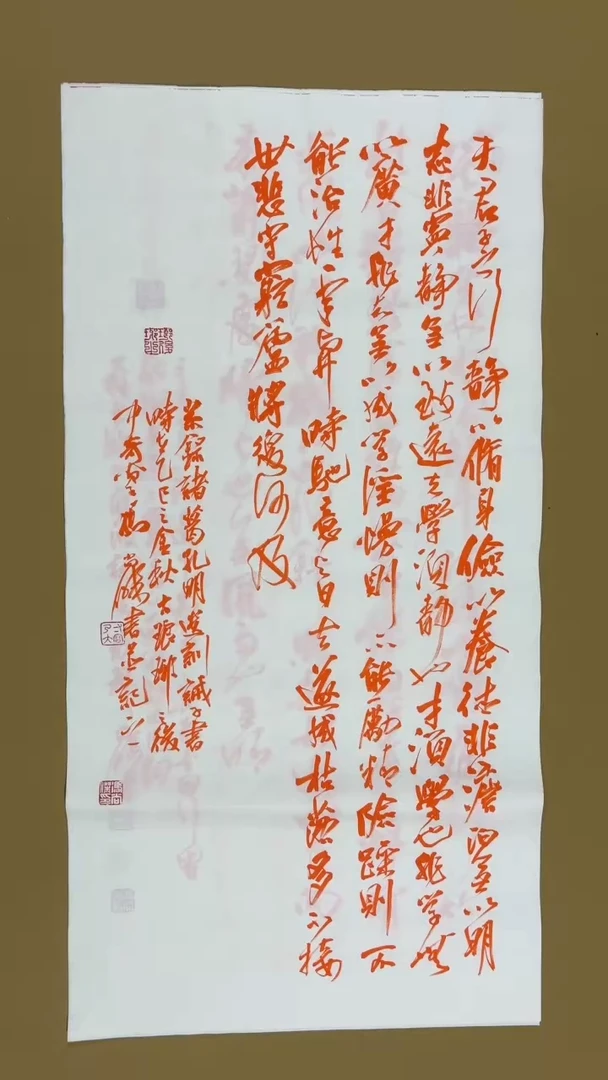 夫君子之行靜以脩身儉以養德非澹泊無以明
志非寧靜無以致遠夫學須靜也才須學也非學無
以廣才非志無以成學淫慢則不能勵精險躁則不
能冶性年與時馳意與日去遂成枯落多不接
世悲守窮廬將復何及
錄諸葛孔明遺訓誡子書
時在乙巳之金秋古琅琊之後
書並記